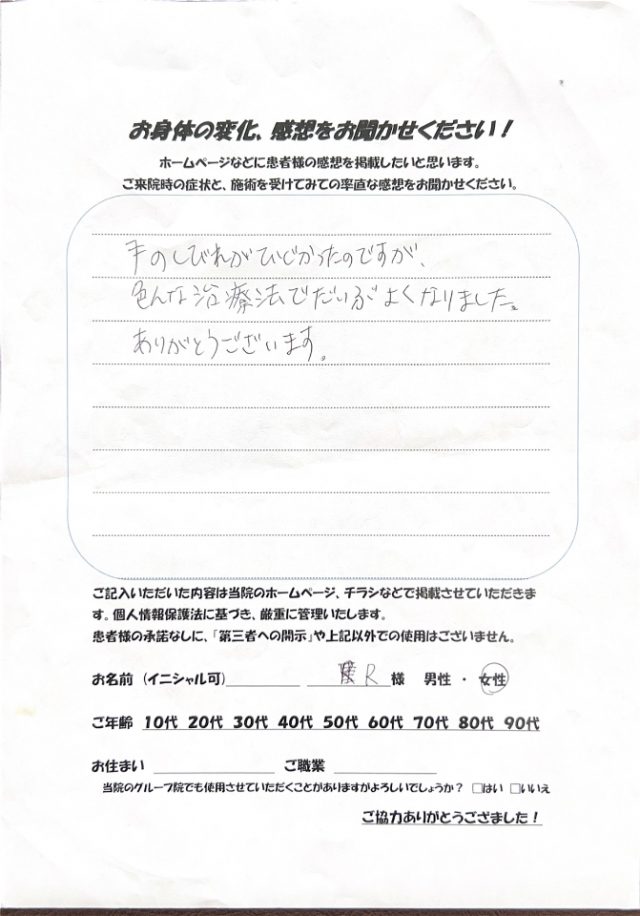 お身体の変化、感想をお聞かせください！
ホームページなどに患者様の感想を掲載したいと思います。
ご来院時の症状と、施術を受けてみての率直な感想をお聞かせください。
手のしびれがひどかったのですが、
色んな治療法でだいぶよくなりました。
ありがとうございます。
ご記入いただいた内容は当院のホームページ、チラシなどで掲載させていただきま
す。個人情報保護法に基づき、厳重に管理いたします。
患者様の承諾なしに、「第三者への開示」や上記以外での使用はございません。
お名前（イニシャル可） R 様 男性 ・ 女性
ご年齢 10代 20代 30代 40代 50代 60代 70代 80代 90代
お住まい ご職業
当院のグループ院でも使用させていただくことがありますがよろしいでしょうか？ □はい □いいえ
ご協力ありがとうござました！